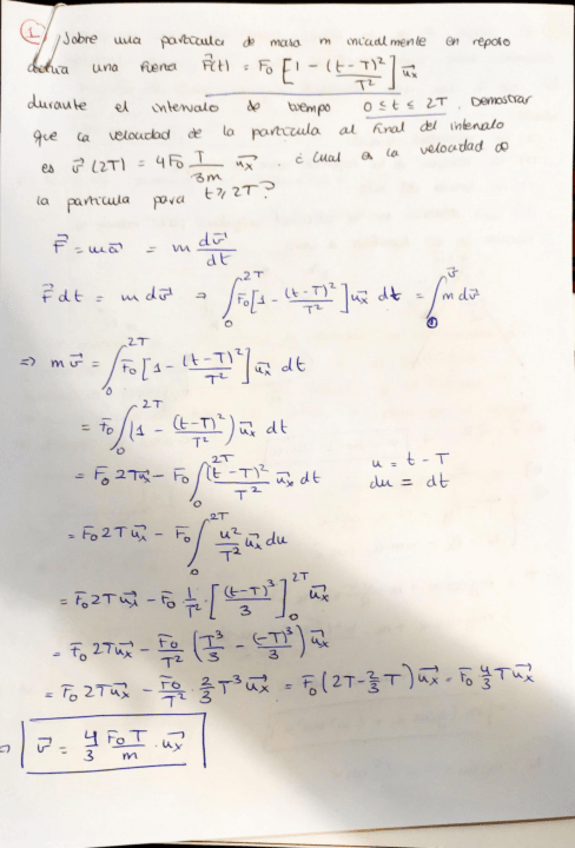 ① Sobre una partícula de masa m inicialmente en reposo
actúa una fuerza F⃗(t) = F₀ [1 - (t-T)²/T²] u⃗ₓ
durante el intervalo de tiempo 0 ≤ t ≤ 2T. Demostrar
que la velocidad de la partícula al final del intervalo
es v⃗(2T) = 4F₀ T/3m u⃗ₓ. ¿Cual es la velocidad de
la partícula para t ≥ 2T?
F⃗ = ma⃗ = m dv⃗/dt
F⃗dt = m dv⃗ ⇒ ∫₀^2T F₀[1 - (t-T)²/T²] u⃗ₓ dt = ∫₀^v⃗ m dv⃗
⇒ m v⃗ = ∫₀^2T F₀ [1 - (t-T)²/T²] u⃗ₓ dt
= F₀ ∫₀^2T (1 - (t-T)²/T²) u⃗ₓ dt
= F₀ 2T u⃗ₓ - F₀ ∫₀^2T (t-T)²/T² u⃗ₓ dt u = t - T
du = dt
= F₀ 2T u⃗ₓ - F₀ ∫₀^2T u²/T² u⃗ₓ du
= F₀ 2T u⃗ₓ - F₀ 1/T² · [(t-T)³/3]₀^2T u⃗ₓ
= F₀ 2T u⃗ₓ - F₀/T² (T³/3 - (-T)³/3) u⃗ₓ
= F₀ 2T u⃗ₓ - F₀/T² · 2/3 T³ u⃗ₓ = F₀ (2T - 2/3 T) u⃗ₓ = F₀ 4/3 T u⃗ₓ
⇒ v⃗ = 4/3 F₀T/m · u⃗ₓ